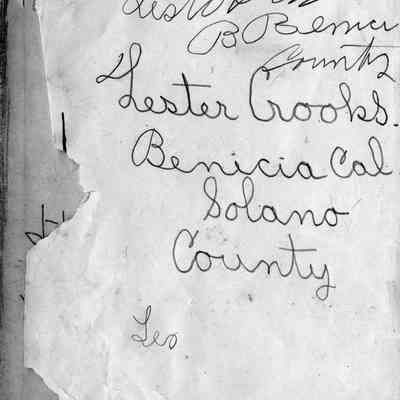 B Benici
County
Lester Crooks.
Benicia Cal.
Solano
County
Les